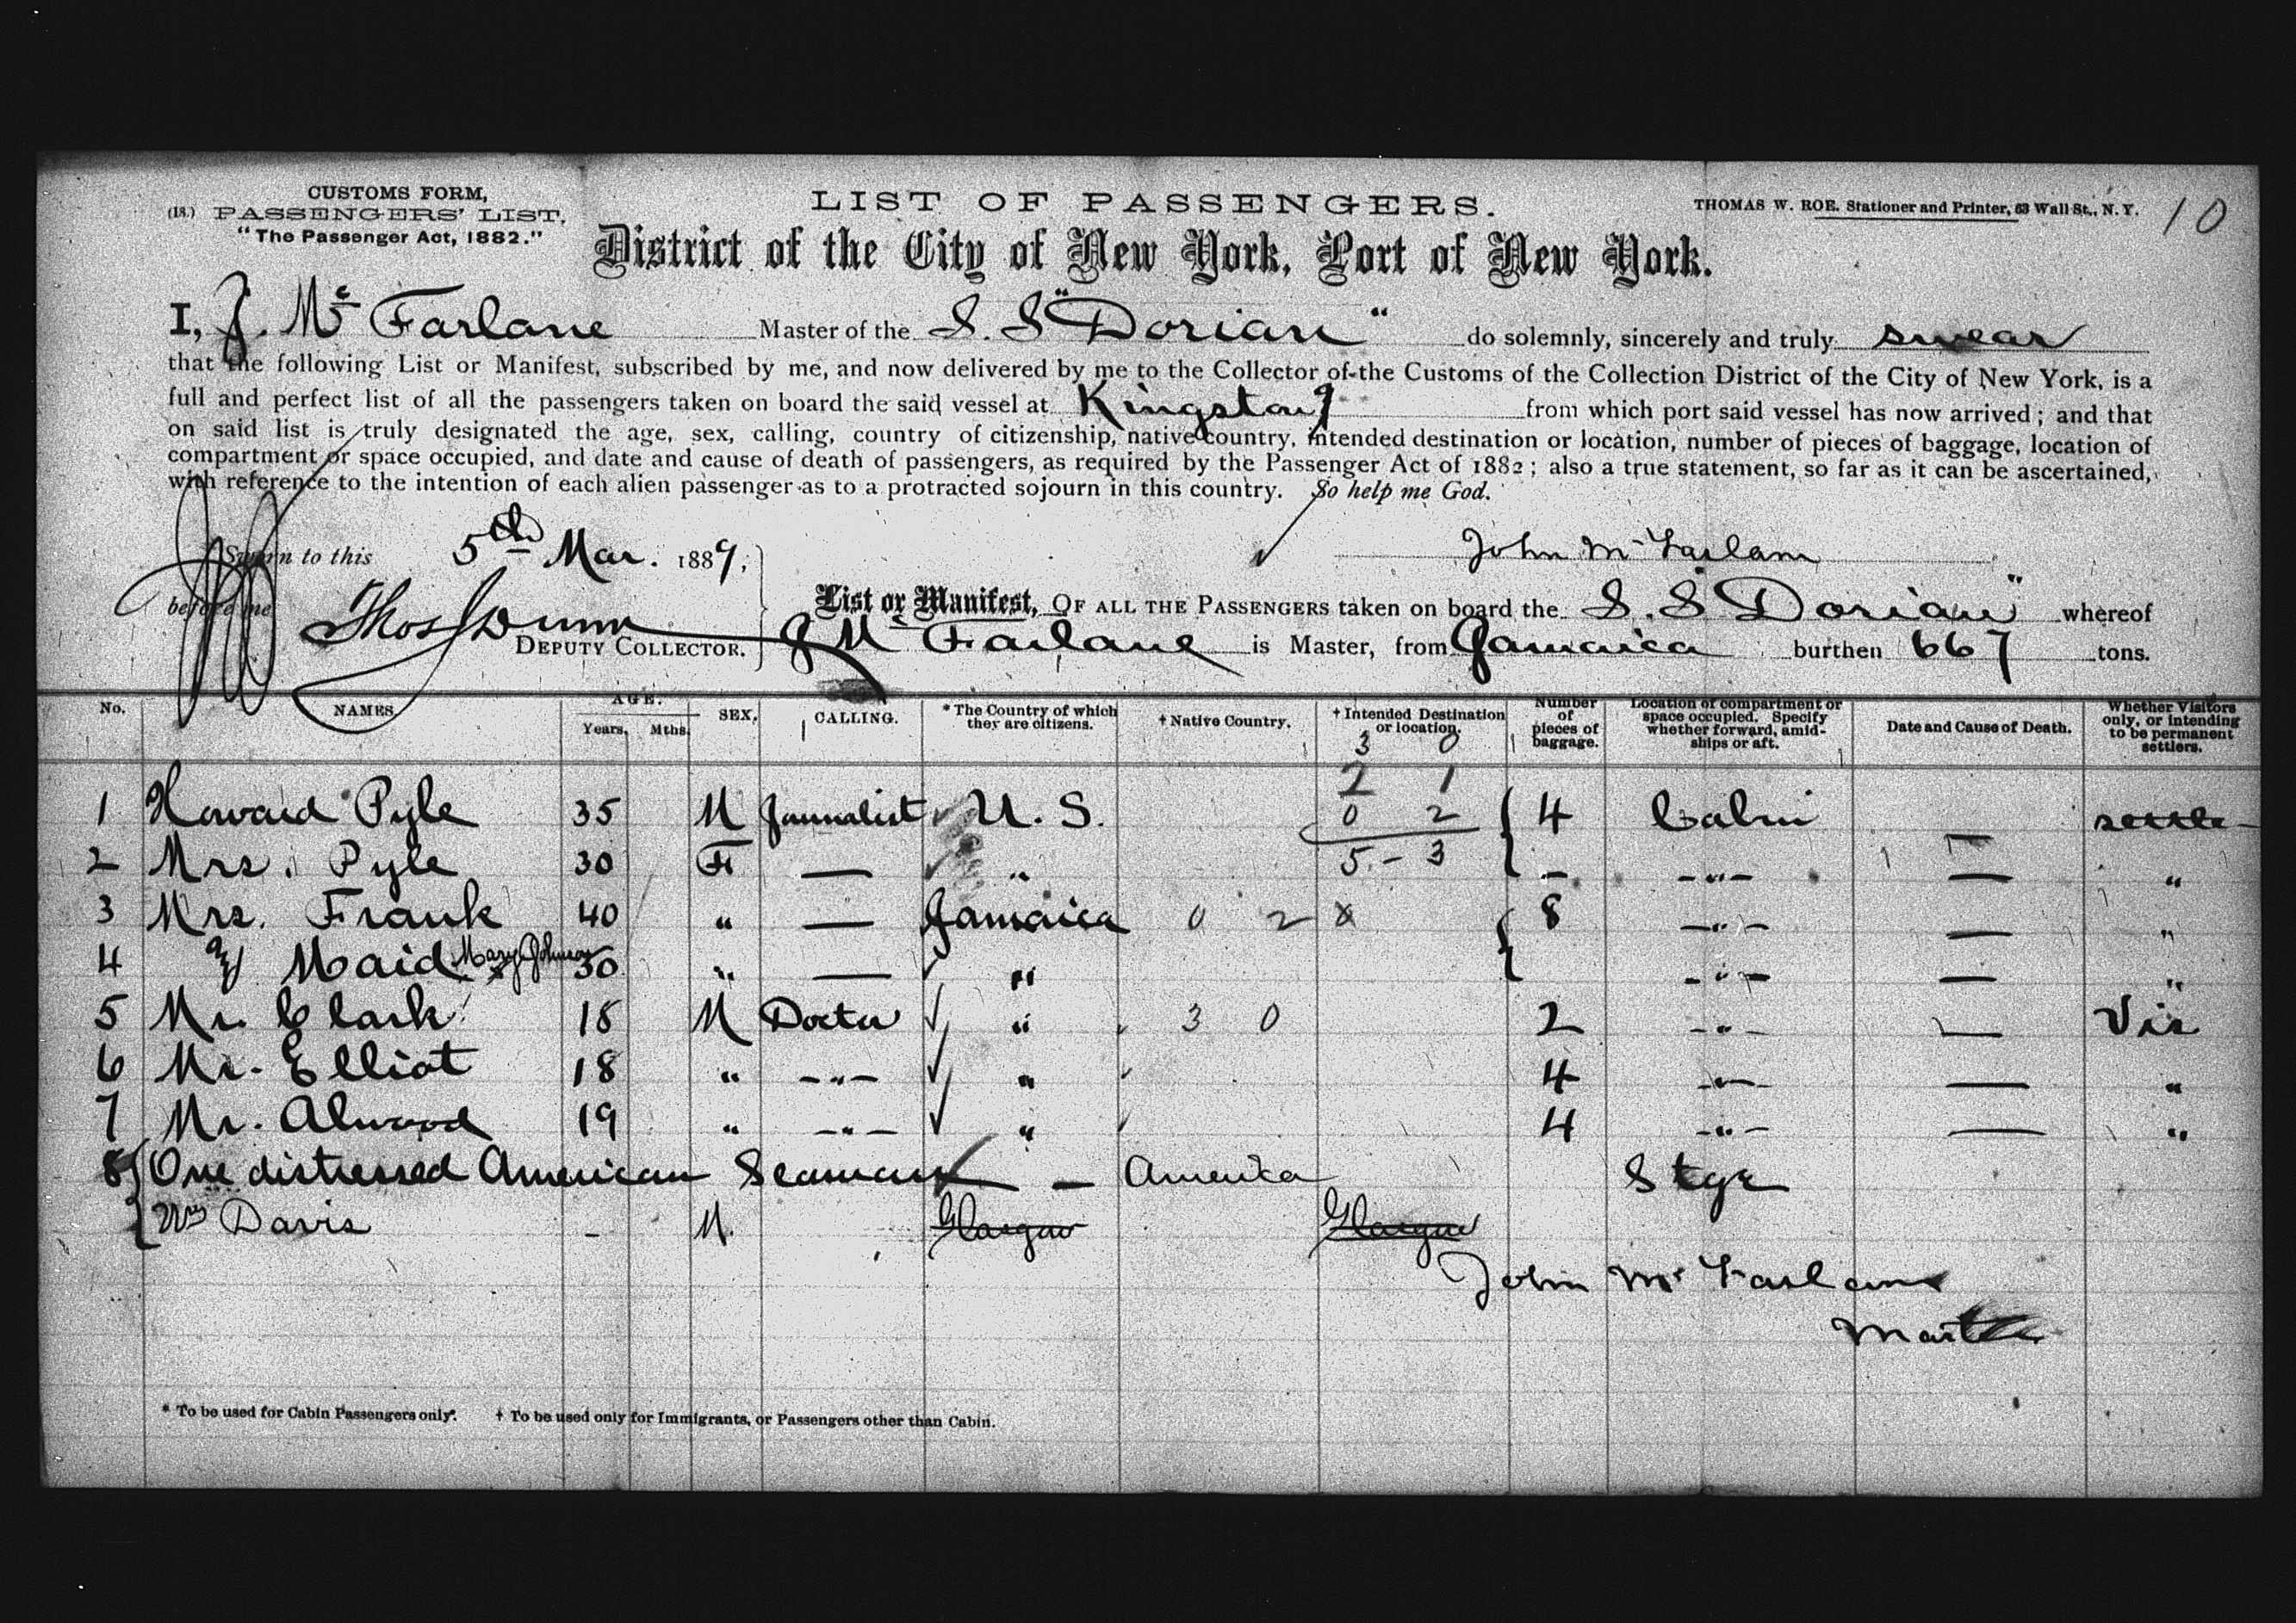 CUSTOMS FORM,
(18.) PASSENGERS' LIST,
"The Passenger Act, 1882."
LIST OF PASSENGERS.
THOMAS W. ROE. Stationer and Printer, 63 Wall St., N. Y.
10
District of the City of New York, Port of New York.
I, J. Mc Farlane Master of the S. S "Dorian" do solemnly, sincerely and truly swear
that the following List or Manifest, subscribed by me, and now delivered by me to the Collector of the Customs of the Collection District of the City of New York, is a
full and perfect list of all the passengers taken on board the said vessel at Kingston J from which port said vessel has now arrived; and that
on said list is truly designated the age, sex, calling, country of citizenship, native country, intended destination or location, number of pieces of baggage, location of
compartment or space occupied, and date and cause of death of passengers, as required by the Passenger Act of 1882; also a true statement, so far as it can be ascertained,
with reference to the intention of each alien passenger as to a protracted sojourn in this country. So help me God.
Sworn to this 5th Mar. 1889;
John McFarlane
before me
Thos J Dunn
DEPUTY COLLECTOR.
List or Manifest, OF ALL THE PASSENGERS taken on board the S. S "Dorian" whereof
J Mc Farlane is Master, from Jamaica burthen 667 tons.
No. NAMES AGE. Years, Mths. SEX. CALLING. * The Country of which they are citizens. † Native Country. † Intended Destination or location. Number of pieces of baggage. Location of compartment or space occupied. Specify whether forward, amidships or aft. Date and Cause of Death. Whether Visitors only, or intending to be permanent settlers.
3 0
2 1
1 Howard Pyle 35 M Journalist U. S. 0 2 4 Cabin — settle
2 Mrs. Pyle 30 F — " 5 - 3 - -"- — "
3 Mrs. Frank 40 " — Jamaica 0 2 x 8 -"- — "
4 & Maid Mary Johnson 30 " — " -"- — "
5 Mr. Clark 18 M Doctor " 3 0 2 -"- — Vis
6 Mr. Elliot 18 " -"- " 4 -"- — "
7 Mr. Alwood 19 " -"- " 4 -"- — "
8 One distressed American Seaman — America Stge
Wm Davis - M. Glasgow Glasgow
John Mc Farlane
Master
* To be used for Cabin Passengers only. † To be used only for Immigrants, or Passengers other than Cabin.